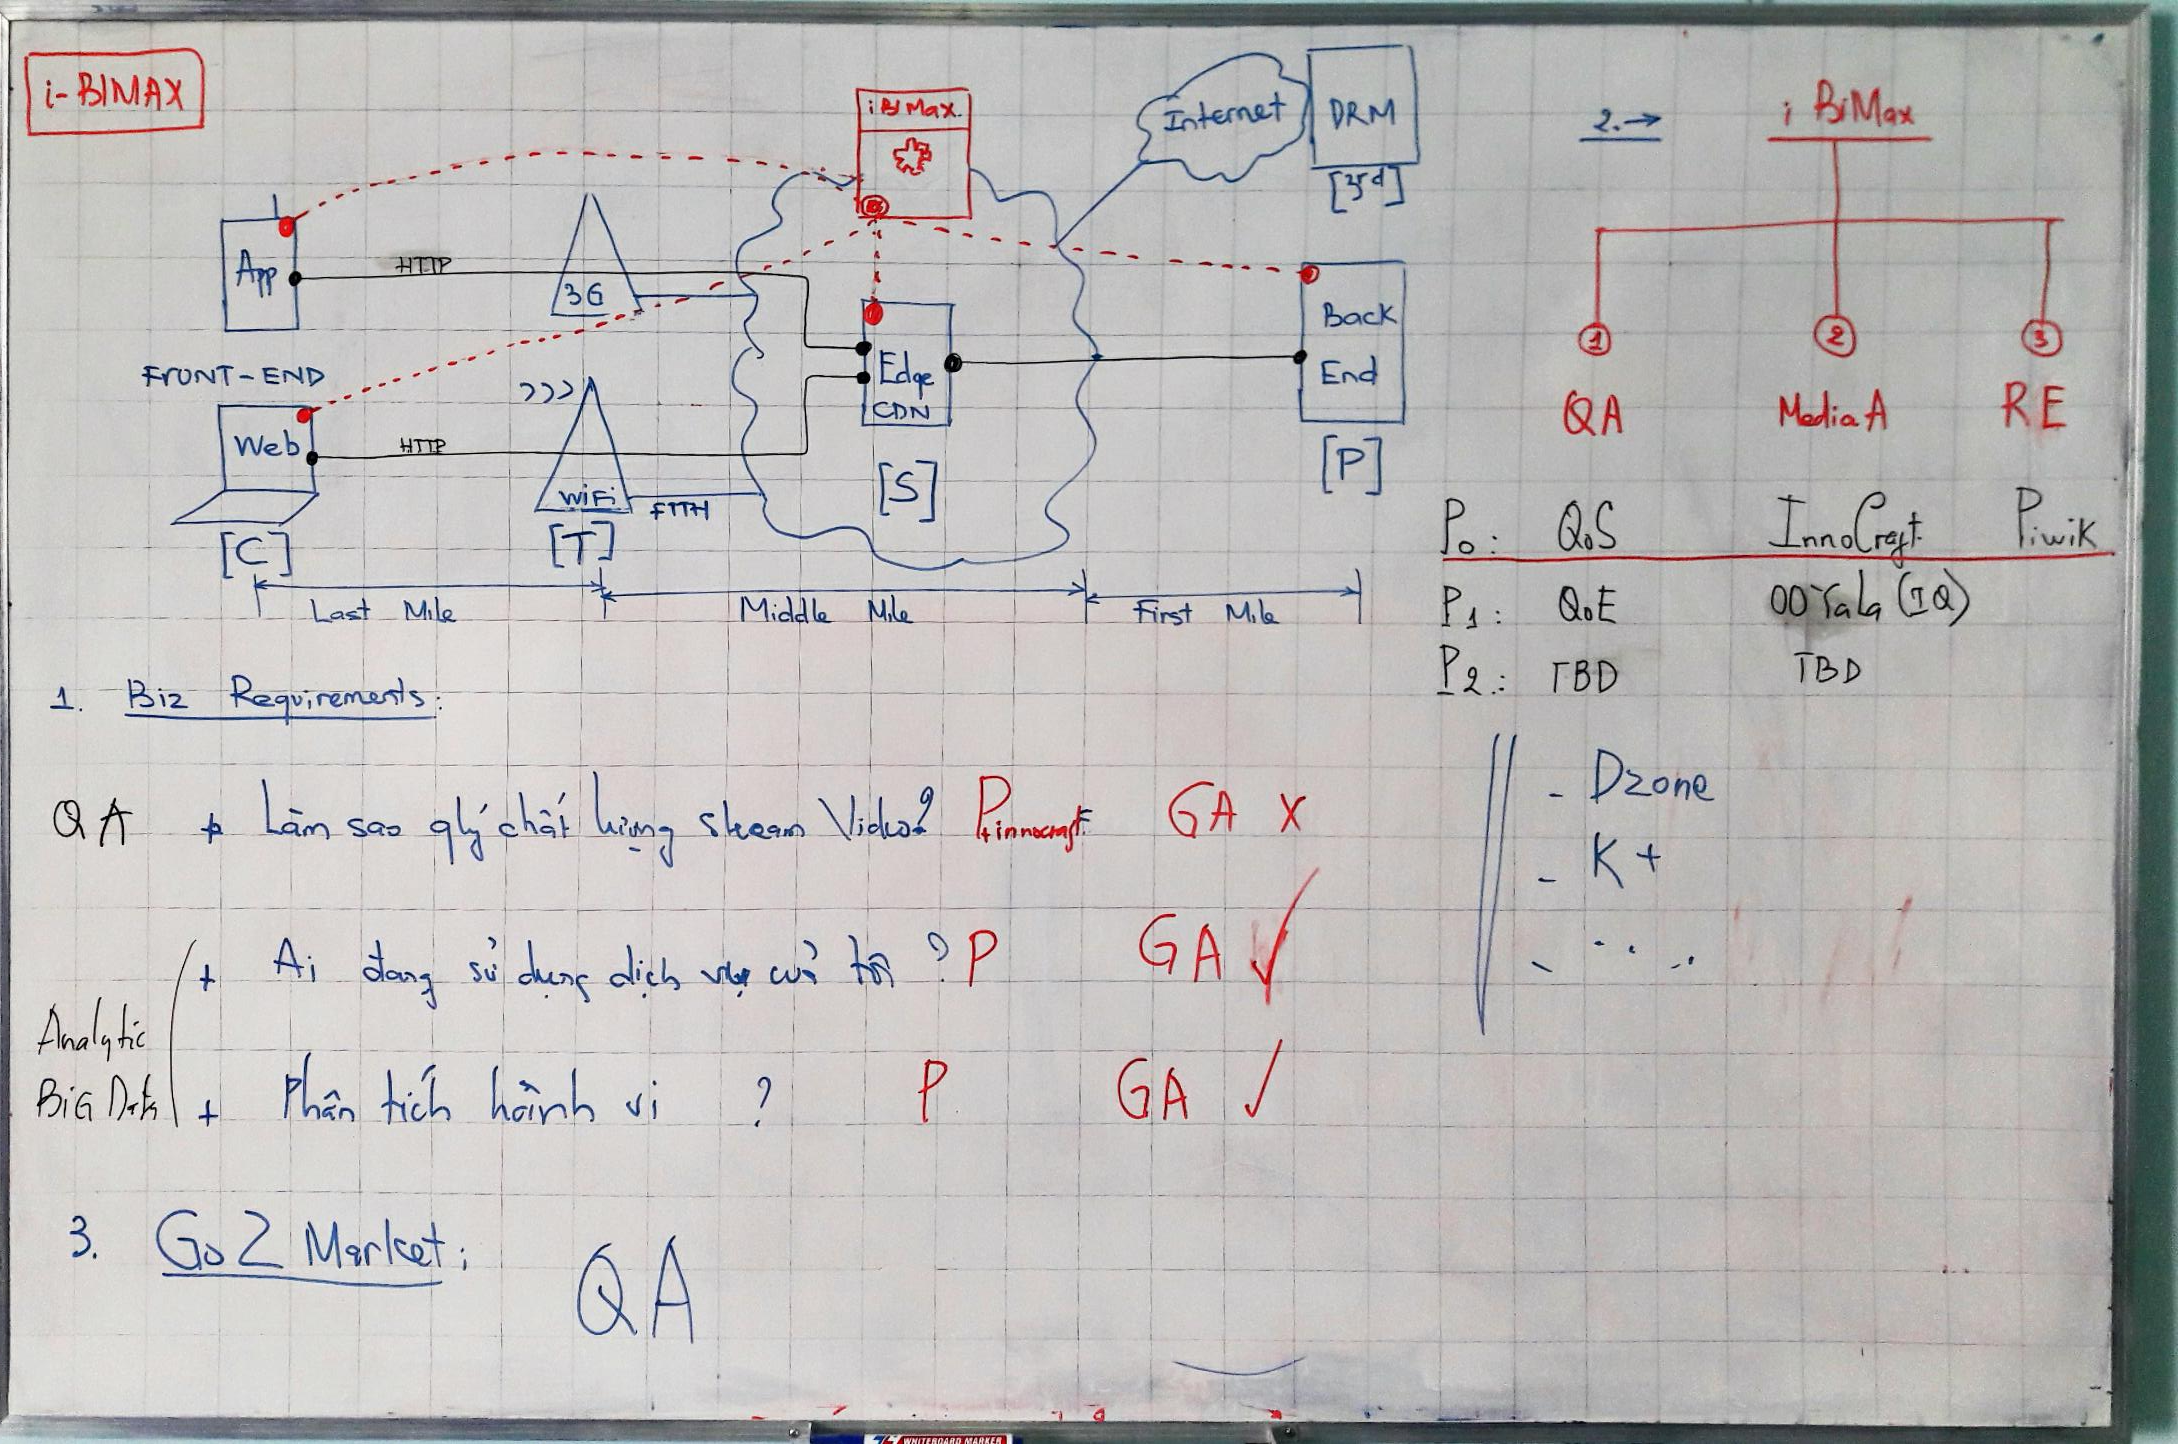 i-BIMAX
iBiMax.
Internet
DRM
[3rd]
App
HTTP
3G
FRONT-END
Web
HTTP
WiFi
FTTH
Edge
CDN
Back
End
[C]
[T]
[S]
[P]
Last Mile
Middle Mile
First Mile
2.→ iBiMax
1 2 3
QA Media A RE
P0: QoS InnoCraft Piwik
P1: QoE OOYala (IQ)
P2: TBD TBD
- Dzone
- K+
- ...
1. Biz Requirements:
QA + Làm sao qlý chất lượng stream Video? P+innocraft GA X
Analytic
BiG Data
+ Ai đang sử dụng dịch vụ của tôi? P GA ✓
+ Phân tích hành vi ? P GA ✓
3. Go 2 Market:
QA
WHITEBOARD MARKER